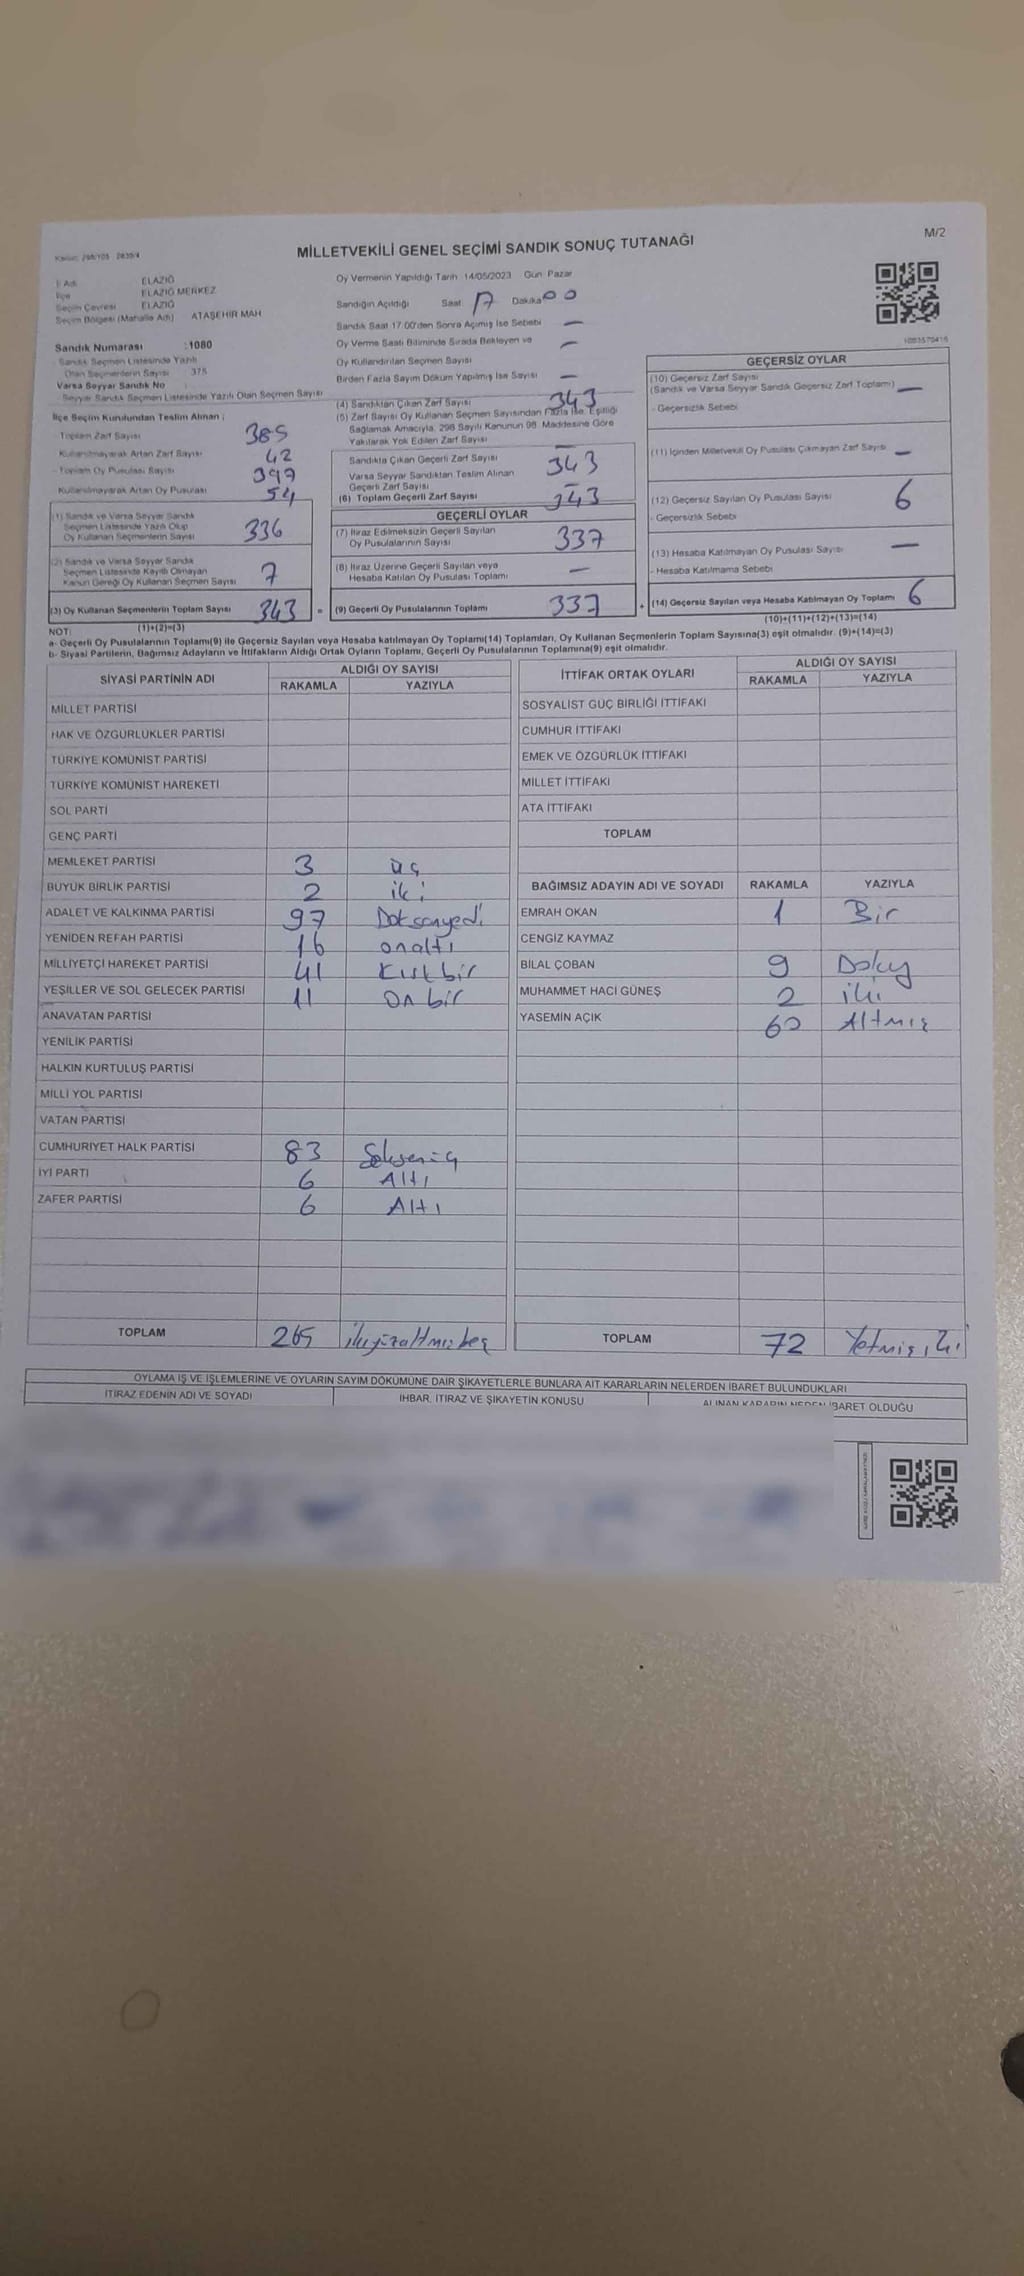 M/2
MİLLETVEKİLİ GENEL SEÇİMİ SANDIK SONUÇ TUTANAĞI
İl Adı ELAZIĞ
İlçe ELAZIĞ MERKEZ
Seçim Çevresi ELAZIĞ
Seçim Bölgesi (Mahalle Adı) ATAŞEHİR MAH
Sandık Numarası :1080
Sandık Seçmen Listesinde Yazılı
Olan Seçmenlerin Sayısı 375
Varsa Seyyar Sandık No
Seyyar Sandık Seçmen Listesinde Yazılı Olan Seçmen Sayısı
İlçe Seçim Kurulundan Teslim Alınan ;
- Toplam Zarf Sayısı 385
Kullanılmayarak Artan Zarf Sayısı 42
- Toplam Oy Pusulası Sayısı 397
Kullanılmayarak Artan Oy Pusulası 54
(1) Sandık ve Varsa Seyyar Sandık
Seçmen Listesinde Yazılı Olup
Oy Kullanan Seçmenlerin Sayısı 336
(2) Sandık ve Varsa Seyyar Sandık
Seçmen Listesinde Kayıtlı Olmayan
Kanun Gereği Oy Kullanan Seçmen Sayısı 7
(3) Oy Kullanan Seçmenlerin Toplam Sayısı 343 =
(1)+(2)=(3)
Oy Vermenin Yapıldığı Tarih 14/05/2023 Gün Pazar
Sandığın Açıldığı Saat 17 Dakika 00
Sandık Saat 17.00'den Sonra Açılmış İse Sebebi —
Oy Verme Saati Bitiminde Sırada Bekleyen ve —
Oy Kullandırılan Seçmen Sayısı
Birden Fazla Sayım Döküm Yapılmış İse Sayısı —
(4) Sandıktan Çıkan Zarf Sayısı 343
(5) Zarf Sayısı Oy Kullanan Seçmen Sayısından Fazla İse, Eşitliği
Sağlamak Amacıyla, 298 Sayılı Kanunun 98. Maddesine Göre
Yakılarak Yok Edilen Zarf Sayısı —
Sandıkta Çıkan Geçerli Zarf Sayısı 343
Varsa Seyyar Sandıktan Teslim Alınan
Geçerli Zarf Sayısı —
(6) Toplam Geçerli Zarf Sayısı 343
GEÇERLİ OYLAR
(7) İtiraz Edilmeksizin Geçerli Sayılan
Oy Pusulalarının Sayısı 337
(8) İtiraz Üzerine Geçerli Sayılan veya
Hesaba Katılan Oy Pusulası Toplamı —
(9) Geçerli Oy Pusulalarının Toplamı 337 +
GEÇERSİZ OYLAR
(10) Geçersiz Zarf Sayısı
(Sandık ve Varsa Seyyar Sandık Geçersiz Zarf Toplamı) —
- Geçersizlik Sebebi
(11) İçinden Milletvekili Oy Pusulası Çıkmayan Zarf Sayısı —
(12) Geçersiz Sayılan Oy Pusulası Sayısı 6
- Geçersizlik Sebebi
(13) Hesaba Katılmayan Oy Pusulası Sayısı —
- Hesaba Katılmama Sebebi
(14) Geçersiz Sayılan veya Hesaba Katılmayan Oy Toplamı 6
(10)+(11)+(12)+(13)=(14)
NOT:
a- Geçerli Oy Pusulalarının Toplamı(9) ile Geçersiz Sayılan veya Hesaba katılmayan Oy Toplamı(14) Toplamları, Oy Kullanan Seçmenlerin Toplam Sayısına(3) eşit olmalıdır. (9)+(14)=(3)
b- Siyasi Partilerin, Bağımsız Adayların ve İttifakların Aldığı Ortak Oyların Toplamı, Geçerli Oy Pusulalarının Toplamına(9) eşit olmalıdır.
SİYASİ PARTİNİN ADI ALDIĞI OY SAYISI
RAKAMLA YAZIYLA
MİLLET PARTİSİ
HAK VE ÖZGÜRLÜKLER PARTİSİ
TÜRKİYE KOMÜNİST PARTİSİ
TÜRKİYE KOMÜNİST HAREKETİ
SOL PARTİ
GENÇ PARTİ
MEMLEKET PARTİSİ 3 üç
BÜYÜK BİRLİK PARTİSİ 2 iki
ADALET VE KALKINMA PARTİSİ 97 Doksanyedi
YENİDEN REFAH PARTİSİ 16 onaltı
MİLLİYETÇİ HAREKET PARTİSİ 41 Kırkbir
YEŞİLLER VE SOL GELECEK PARTİSİ 11 On bir
ANAVATAN PARTİSİ
YENİLİK PARTİSİ
HALKIN KURTULUŞ PARTİSİ
MİLLİ YOL PARTİSİ
VATAN PARTİSİ
CUMHURİYET HALK PARTİSİ 83 Seksenüç
İYİ PARTİ 6 Altı
ZAFER PARTİSİ 6 Altı
TOPLAM 265 ikiyüzaltmışbeş
İTTİFAK ORTAK OYLARI ALDIĞI OY SAYISI
RAKAMLA YAZIYLA
SOSYALİST GÜÇ BİRLİĞİ İTTİFAKI
CUMHUR İTTİFAKI
EMEK VE ÖZGÜRLÜK İTTİFAKI
MİLLET İTTİFAKI
ATA İTTİFAKI
TOPLAM
BAĞIMSIZ ADAYIN ADI VE SOYADI RAKAMLA YAZIYLA
EMRAH OKAN 1 Bir
CENGİZ KAYMAZ
BİLAL ÇOBAN 9 Dokuz
MUHAMMET HACİ GÜNEŞ 2 iki
YASEMİN AÇIK 60 Altmış
TOPLAM 72 Yetmiş iki
OYLAMA İŞ VE İŞLEMLERİNE VE OYLARIN SAYIM DÖKÜMÜNE DAİR ŞİKAYETLERLE BUNLARA AİT KARARLARIN NELERDEN İBARET BULUNDUKLARI
İTİRAZ EDENİN ADI VE SOYADI İHBAR, İTİRAZ VE ŞİKAYETİN KONUSU ALINAN KARARIN NEDEN İBARET OLDUĞU